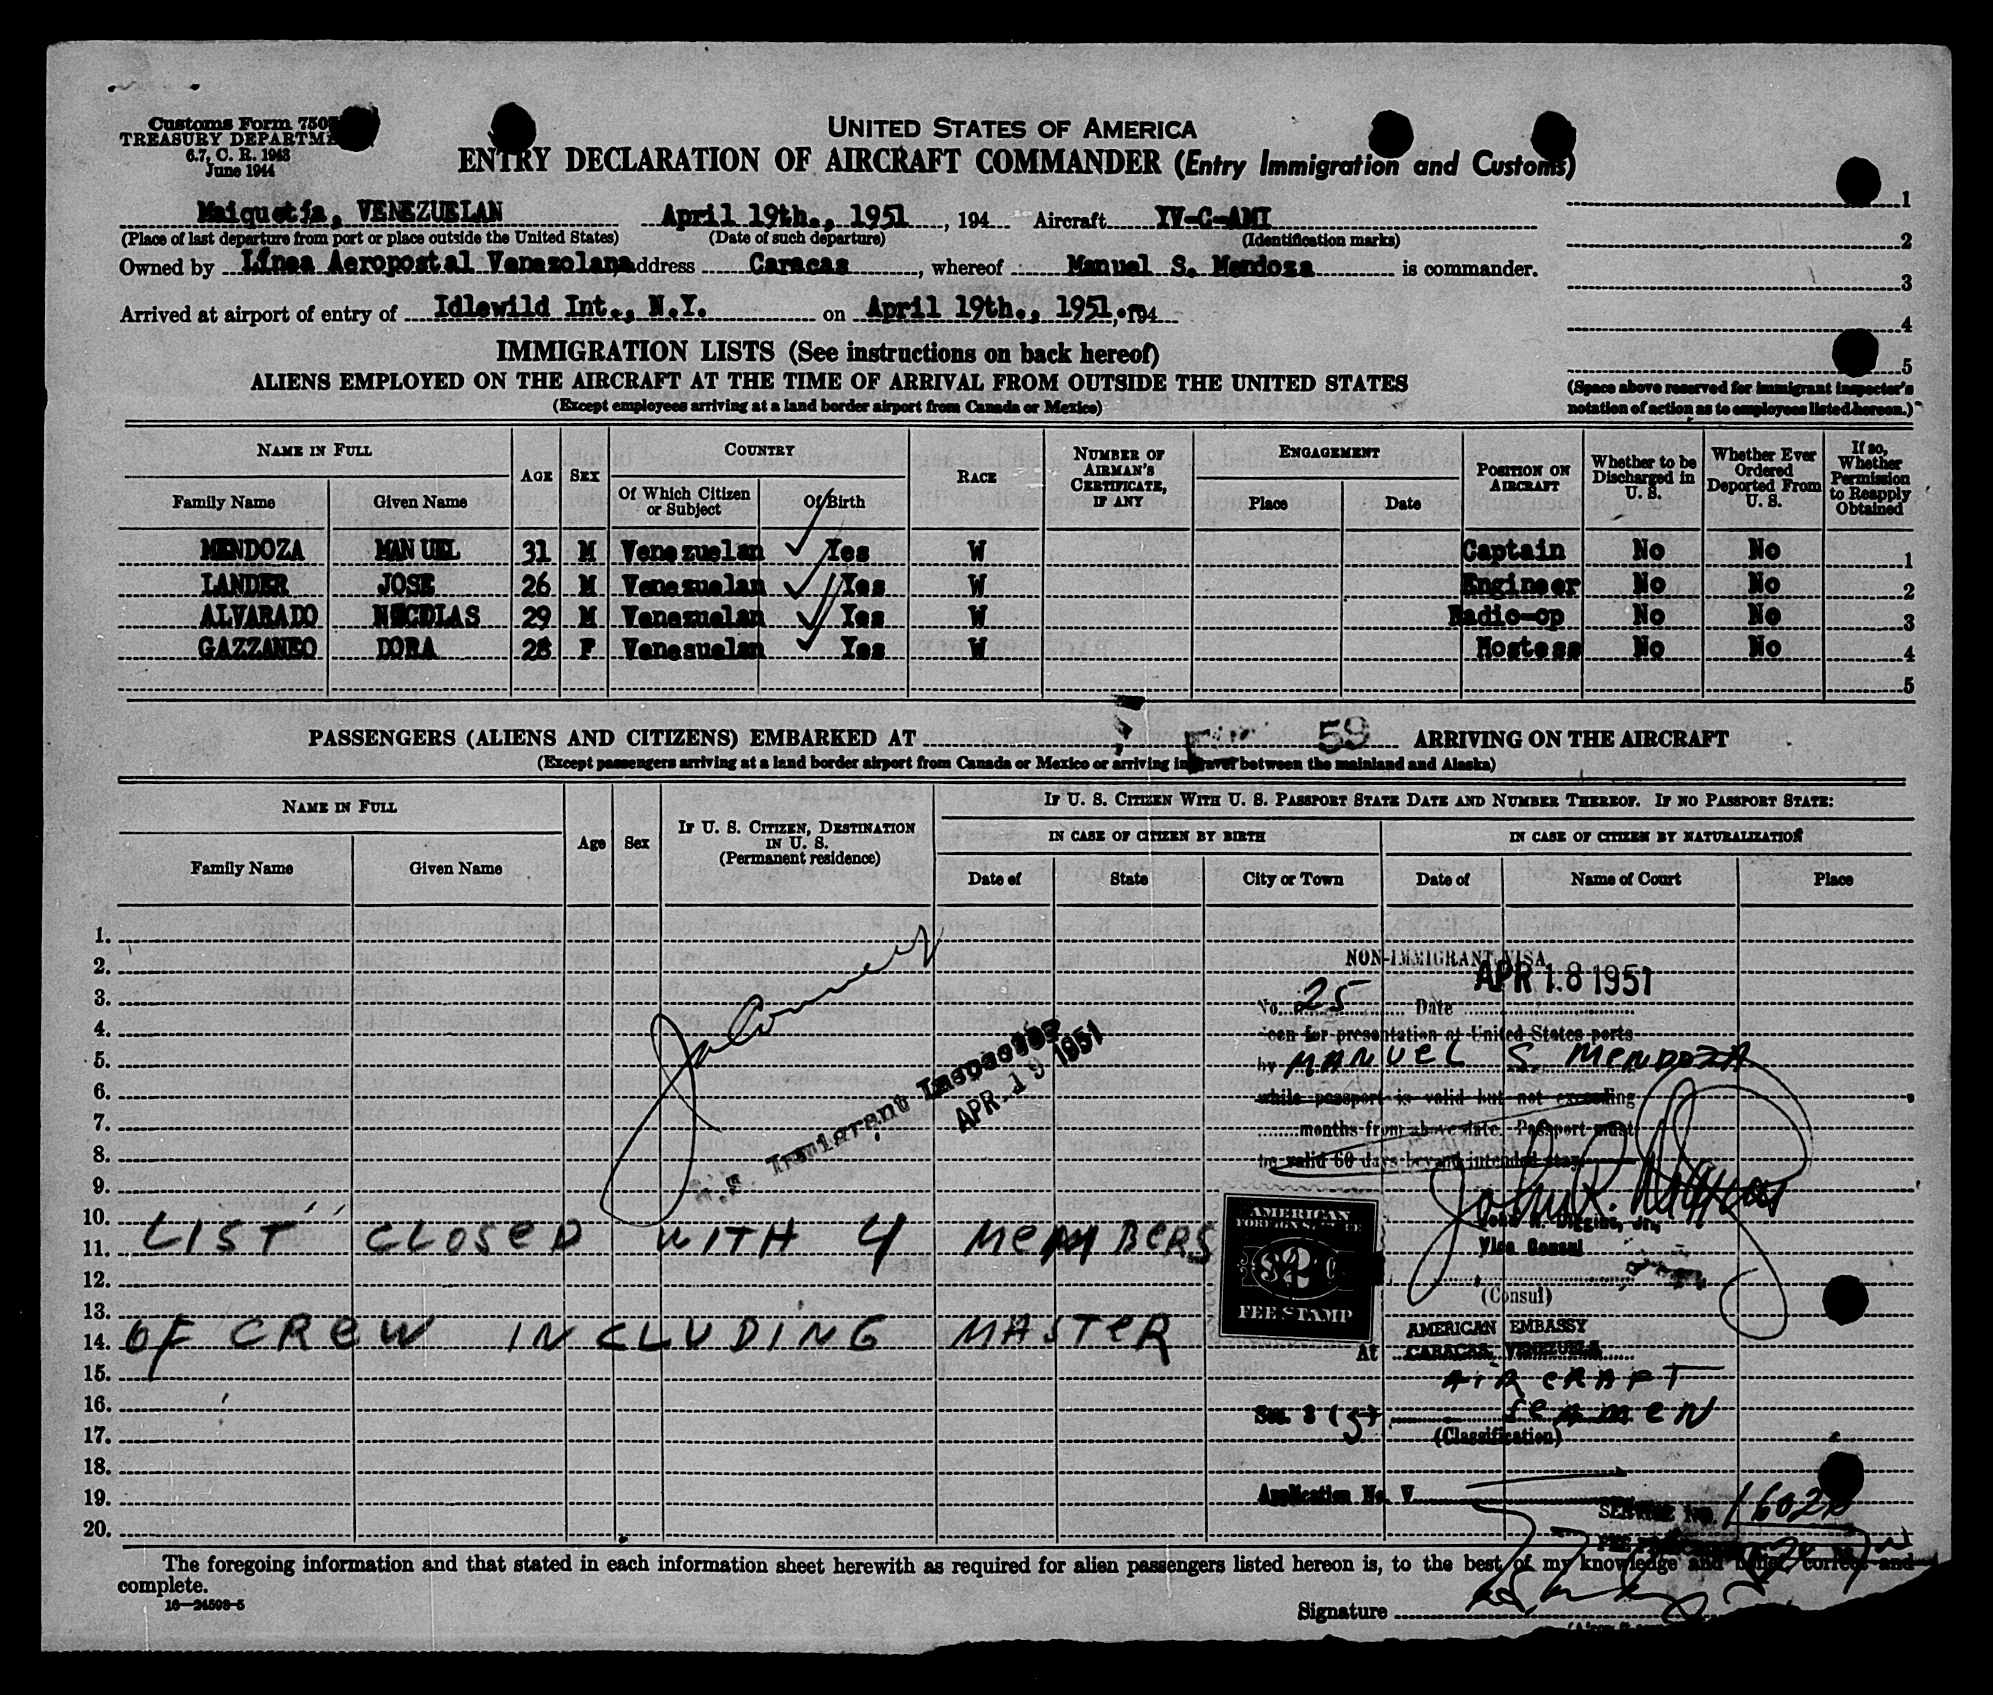 Customs Form 750
TREASURY DEPARTME
6.7, C. R. 1943
June 1944
UNITED STATES OF AMERICA
ENTRY DECLARATION OF AIRCRAFT COMMANDER (Entry Immigration and Customs)
Maiquetía, VENEZUELAN April 19th., 1951, 194 Aircraft YV-C-AMI
(Place of last departure from port or place outside the United States) (Date of such departure) (Identification marks)
Owned by Línea Aeropostal Venezolana address Caracas, whereof Manuel S. Mendoza is commander.
Arrived at airport of entry of Idlewild Int., N.Y. on April 19th., 1951., 194
1
2
3
4
5
(Space above reserved for immigrant inspector's
notation of action as to employees listed hereon.)
IMMIGRATION LISTS (See instructions on back hereof)
ALIENS EMPLOYED ON THE AIRCRAFT AT THE TIME OF ARRIVAL FROM OUTSIDE THE UNITED STATES
(Except employees arriving at a land border airport from Canada or Mexico)
NAME IN FULL AGE SEX COUNTRY RACE NUMBER OF AIRMAN'S CERTIFICATE, IF ANY ENGAGEMENT POSITION ON AIRCRAFT Whether to be Discharged in U. S. Whether Ever Ordered Deported From U. S. If so, Whether Permission to Reapply Obtained
Family Name Given Name Of Which Citizen or Subject Of Birth Place Date
MENDOZA MANUEL 31 M Venezuelan Yes W Captain No No 1
LANDER JOSE 26 M Venezuelan Yes W Engineer No No 2
ALVARADO NICOLAS 29 M Venezuelan Yes W Radio-op No No 3
GAZZANEO DORA 28 F Venezuelan Yes W Hostess No No 4
5
PASSENGERS (ALIENS AND CITIZENS) EMBARKED AT 59 ARRIVING ON THE AIRCRAFT
(Except passengers arriving at a land border airport from Canada or Mexico or arriving in travel between the mainland and Alaska)
NAME IN FULL Age Sex IF U. S. CITIZEN, DESTINATION IN U. S. (Permanent residence) IF U. S. CITIZEN WITH U. S. PASSPORT STATE DATE AND NUMBER THEREOF. IF NO PASSPORT STATE:
IN CASE OF CITIZEN BY BIRTH IN CASE OF CITIZEN BY NATURALIZATION
Family Name Given Name Date of State City or Town Date of Name of Court Place
1.
2.
3.
4.
5.
6.
7.
8.
9.
10.
11.
12.
13.
14.
15.
16.
17.
18.
19.
20.
U.S. Immigrant Inspector
APR 19 1951
LIST CLOSED WITH 4 MEMBERS
OF CREW INCLUDING MASTER
NON-IMMIGRANT VISA
No. 25 Date APR 18 1951
Seen for presentation at United States ports
by MANUEL S. MENDOZA
while passport is valid but not exceeding
months from above date. Passport must
be valid 60 days beyond intended stay
John R. Diggins, Jr.,
Vice Consul
(Consul)
AMERICAN
FOREIGN SERVICE
$2
FEE STAMP
AMERICAN EMBASSY
At CARACAS, VENEZUELA
AIRCRAFT
Sec. 3 (5) seamen
(Classification)
Application No. V
SERVICE No. 1602
The foregoing information and that stated in each information sheet herewith as required for alien passengers listed hereon is, to the best of my knowledge and belief correct and
complete.
16—24598-5
Signature